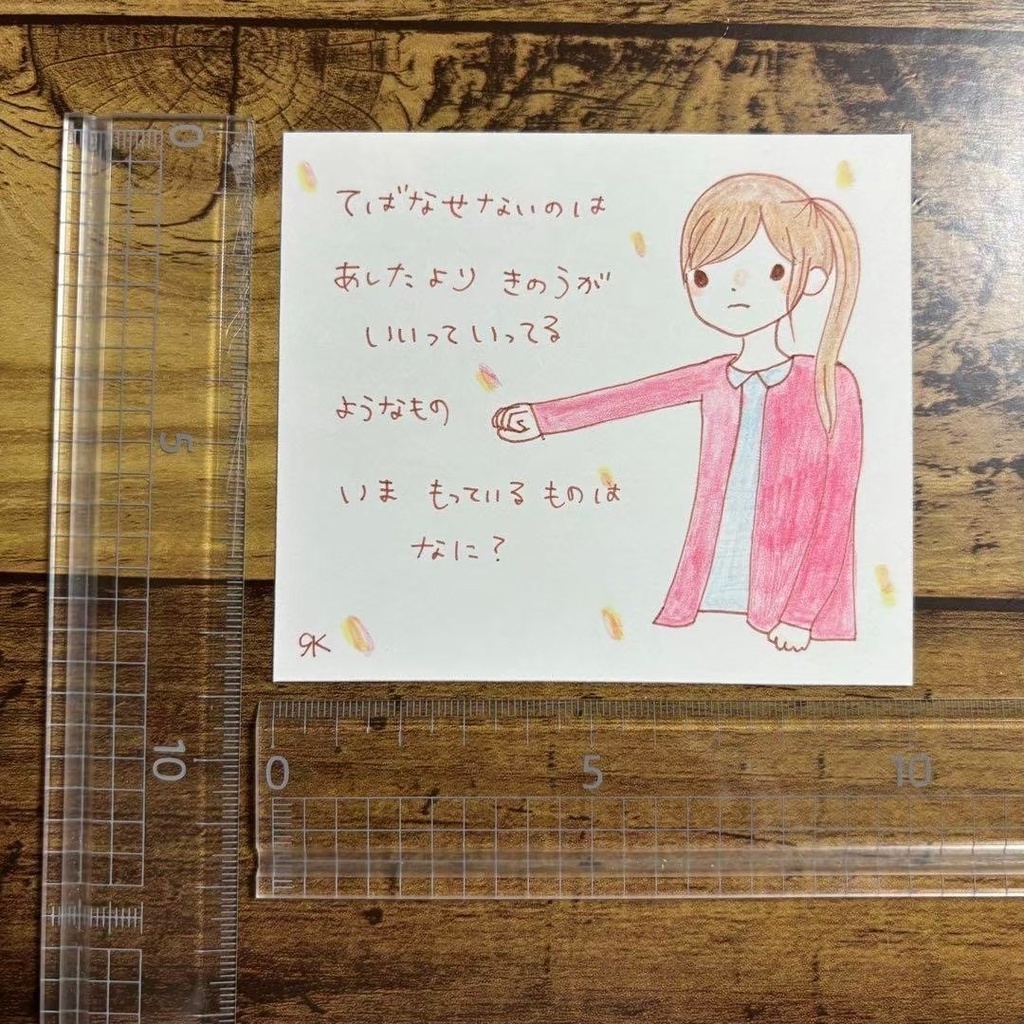 てばなせないのは
あしたより きのうが
いいっていってる
ようなもの
いま もっているものは
なに?
RK
0
5
10
0
5
10